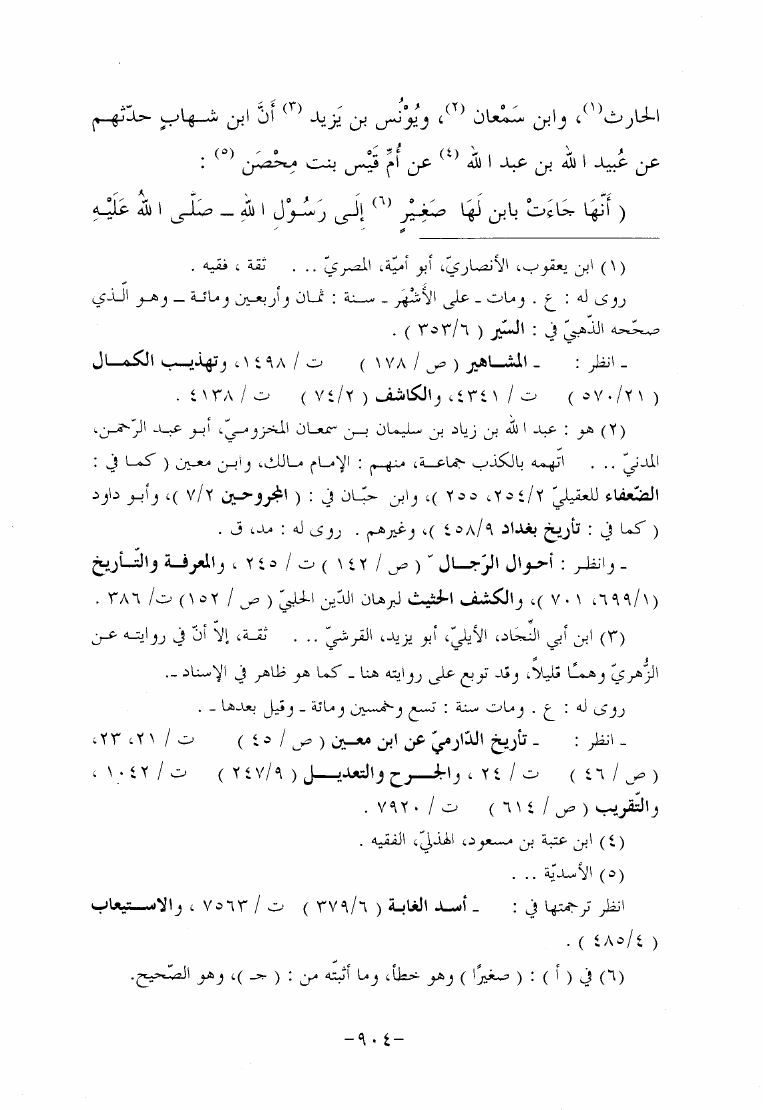 الحارث(١)، وابن سَمْعان(٢)، ويُوْنُس بن يَزيد(٣) أنَّ ابن شهابٍ حدّثهم
عن عُبيد الله بن عبد الله(٤) عن أُمِّ قَيْس بنت مِحْصَن(٥) :
( أَنَّهَا جَاءَتْ بابن لَهَا صَغِيْرٍ(٦) إِلَى رَسُوْل اللهِ ــ صَلَّى اللهُ عَلَيْهِ
(١) ابن يعقوب، الأنصاريّ، أبو أميّة، المصريّ ... ثقة ، فقيه .
روى له : ع . ومات ـ على الأَشْهَر ـ سنة : ثمان وأربعين ومائة ــ وهو الّذي
صحّحه الذّهبيّ في : السِّيَر ( ٣٥٣/٦ ) .
ـ انظر : ـ المشاهير ( ص / ١٧٨ ) ت / ١٤٩٨، وتهذيب الكمال
( ٥٧٠/٢١ ) ت / ٤٣٤١، والكاشف ( ٧٤/٢ ) ت / ٤١٣٨ .
(٢) هو : عبد الله بن زياد بن سليمان بن سمعان المخزوميّ، أبو عبد الرّحمن،
المدنيّ ... اتّهمه بالكذب جماعة، منهم : الإمام مالك، وابن معين ( كما في :
الضّعفاء للعقيليّ ٢٥٤/٢، ٢٥٥ )، وابن حبّان في : ( المجروحين ٧/٢ )، وأبو داود
( كما في : تأريخ بغداد ٤٥٨/٩ )، وغيرهم . روى له : مد، ق .
ـ وانظر : أحوال الرّجال ( ص / ١٤٢ ) ت / ٢٤٥ ، والمعرفة والتّأريخ
(٦٩٩/١، ٧٠١ )، والكشف الحثيث لبرهان الدّين الحلبيّ ( ص / ١٥٢) ت/ ٣٨٦ .
(٣) ابن أبي النّجَاد، الأيليّ، أبو يزيد، القرشيّ ... ثقة، إلاّ أنّ في روايته عن
الزُّهريّ وهمًا قليلاً، وقد توبع على روايته هنا ـ كما هو ظاهر في الإسناد ـ.
روى له : ع . ومات سنة : تسع وخمسين ومائة ـ وقيل بعدها ـ .
ـ انظر : ـ تأريخ الدّارميّ عن ابن معين ( ص / ٤٥ ) ت / ٢١، ٢٣،
( ص / ٤٦ ) ت / ٢٤ ، والجرح والتعديل ( ٢٤٧/٩ ) ت / ١٠٤٢ ،
والتّقريب ( ص / ٦١٤ ) ت / ٧٩٢٠ .
(٤) ابن عتبة بن مسعود، الهذليّ، الفقيه .
(٥) الأسديّة ...
انظر ترجمتها في : ـ أسد الغابة ( ٣٧٩/٦ ) ت / ٧٥٦٣ ، والاستيعاب
( ٤٨٥/٤ ) .
(٦) في ( أ ) : ( صغيرًا ) وهو خطأ، وما أثبتّه من : ( جـ )، وهو الصّحيح.
-٩٠٤-